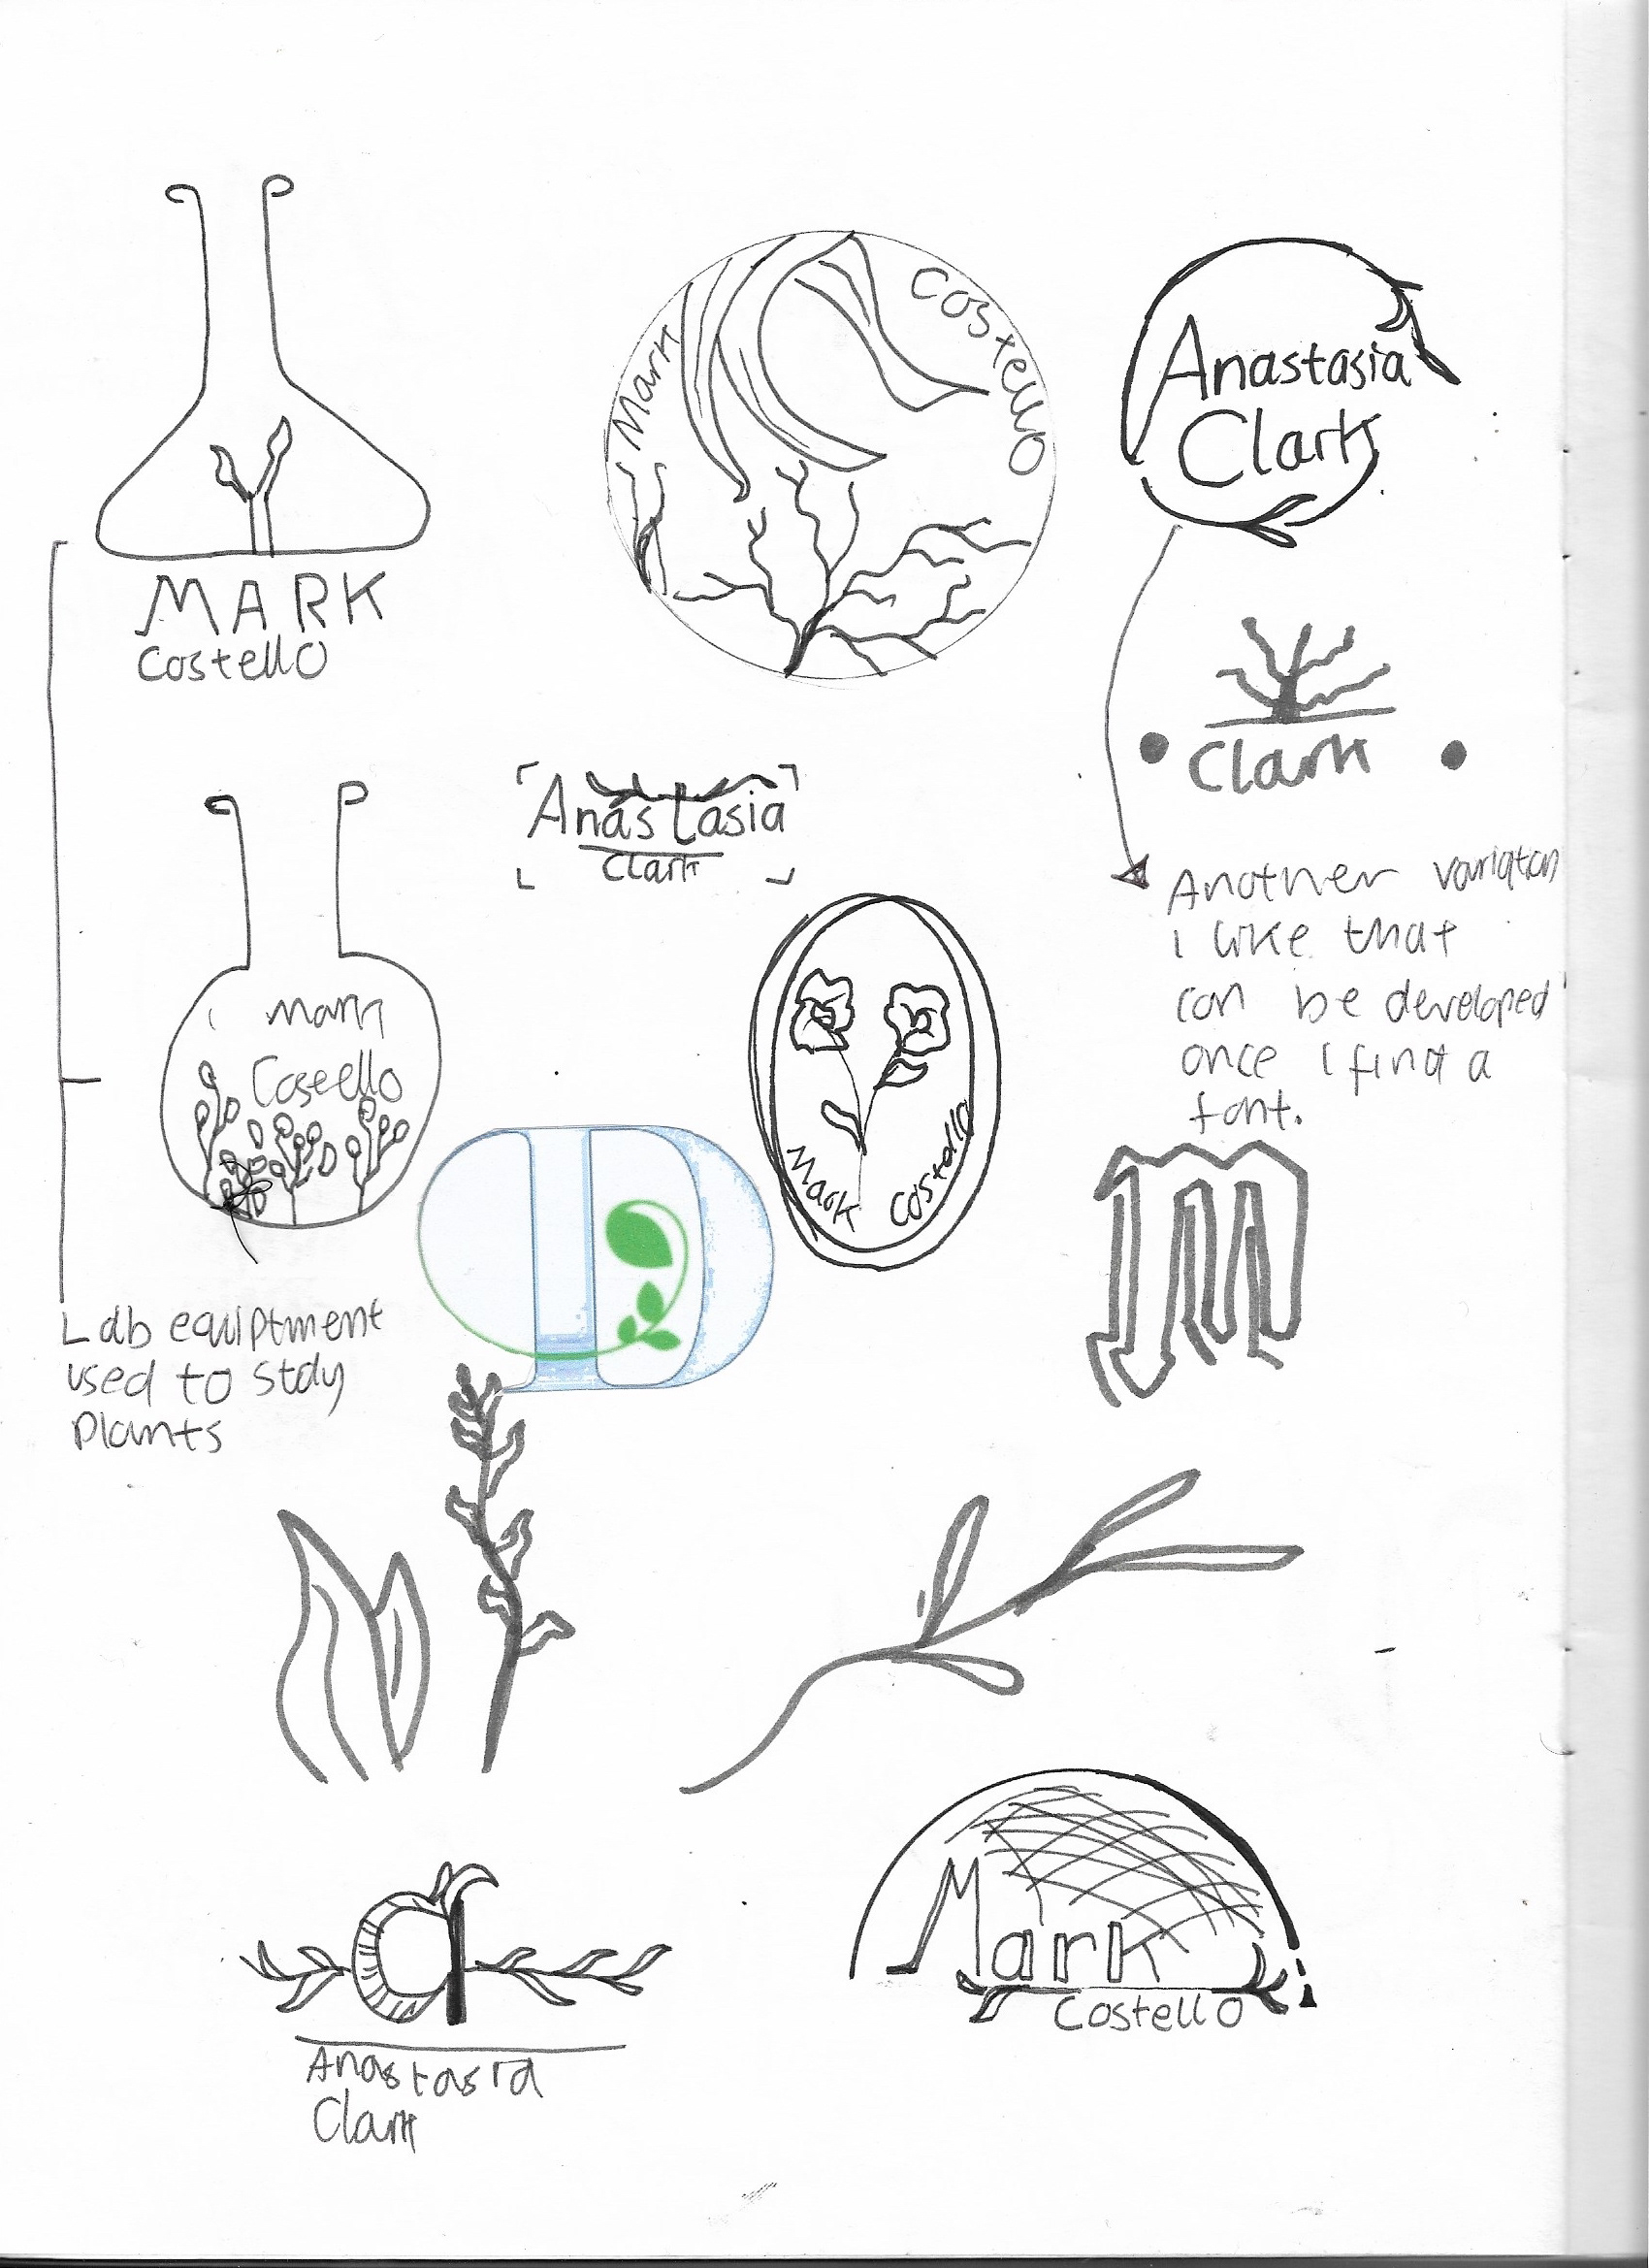 MARK
Costello
Mark Costello
Anastasia
Clark
Clark
Anastasia
Clark
Another variation
I like that
can be developed
once I find a
font.
Mark
Costello
Mark Costello
m
Lab equiptment
used to stdy
plants
a
Anastasia
Clark
Mark
Costello